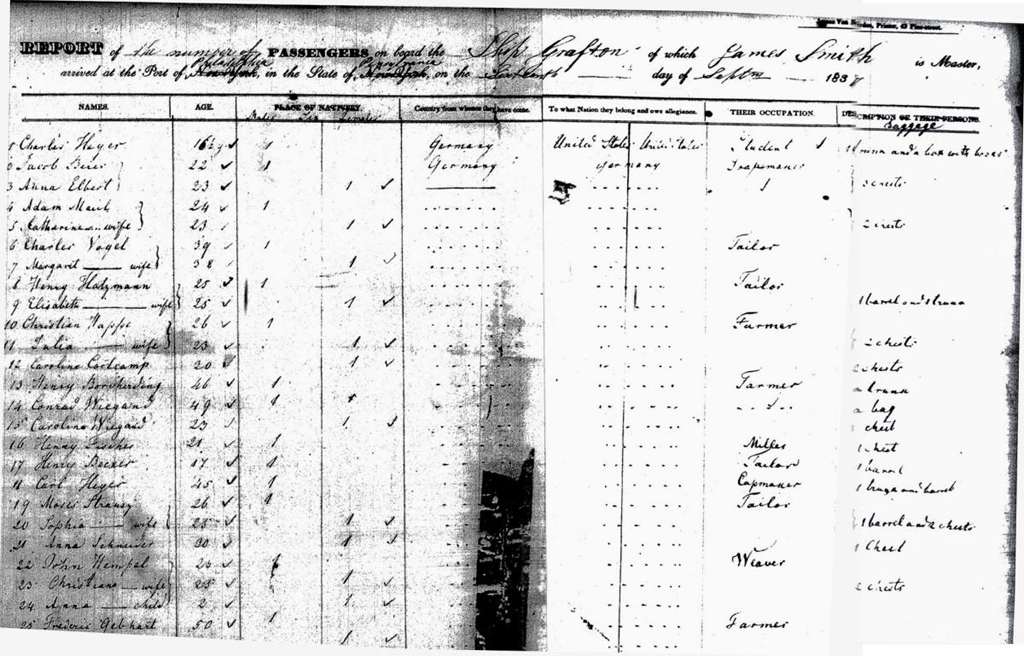 REPORT of the number of PASSENGERS on board the Ship Grafton of which James Smith is Master,
arrived at the Port of Philadelphia, in the State of on the day of Septm 183
NAMES. AGE. PLACE OF NATIVITY. Country from whence they have come. To what Nation they belong and owe allegiance. THEIR OCCUPATION. DESCRIPTION OF THEIR PERSONS.
Males Females Baggage
Charles Heyer 1 Germany United States Student
Jacob Beier 22 1 Germany Germany
3 Anna Elbert 23 1 3 chests
4 Adam 24 1
5 Catharine wife 23 1 2 chests
6 Charles Vogel 39 1 Tailor
7 Margarit wife 38 1
8 Henry Holzmann 25 1 Tailor
9 Elisabeth wife 25 1 1 barrel and
10 Christian 26 1 Farmer
11 Julia wife 23 1 2 chests
12 Caroline 20 1 2 chests
13 Henry Borcherding 46 1 Farmer a trunk
14 Conrad Wiegand 49 1 a bag
15 Caroline Wiegand 23 1 chest
16 Henry 21 1 Miller 1 chest
17 Henry Becker 17 1 Tailor 1 barrel
18 Carl Heyer 45 1 Capmaker
19 Moses 26 1 Tailor
20 Sophia wife 25 1 1 barrel and 2 chests
21 Anna Schneider 30 1 1 Chest
22 John Hempel 26 1 Weaver
23 Christiane wife 25 1 2 chests
24 Anna child 2 1
25 Frederic Gebhart 50 1 Farmer
1